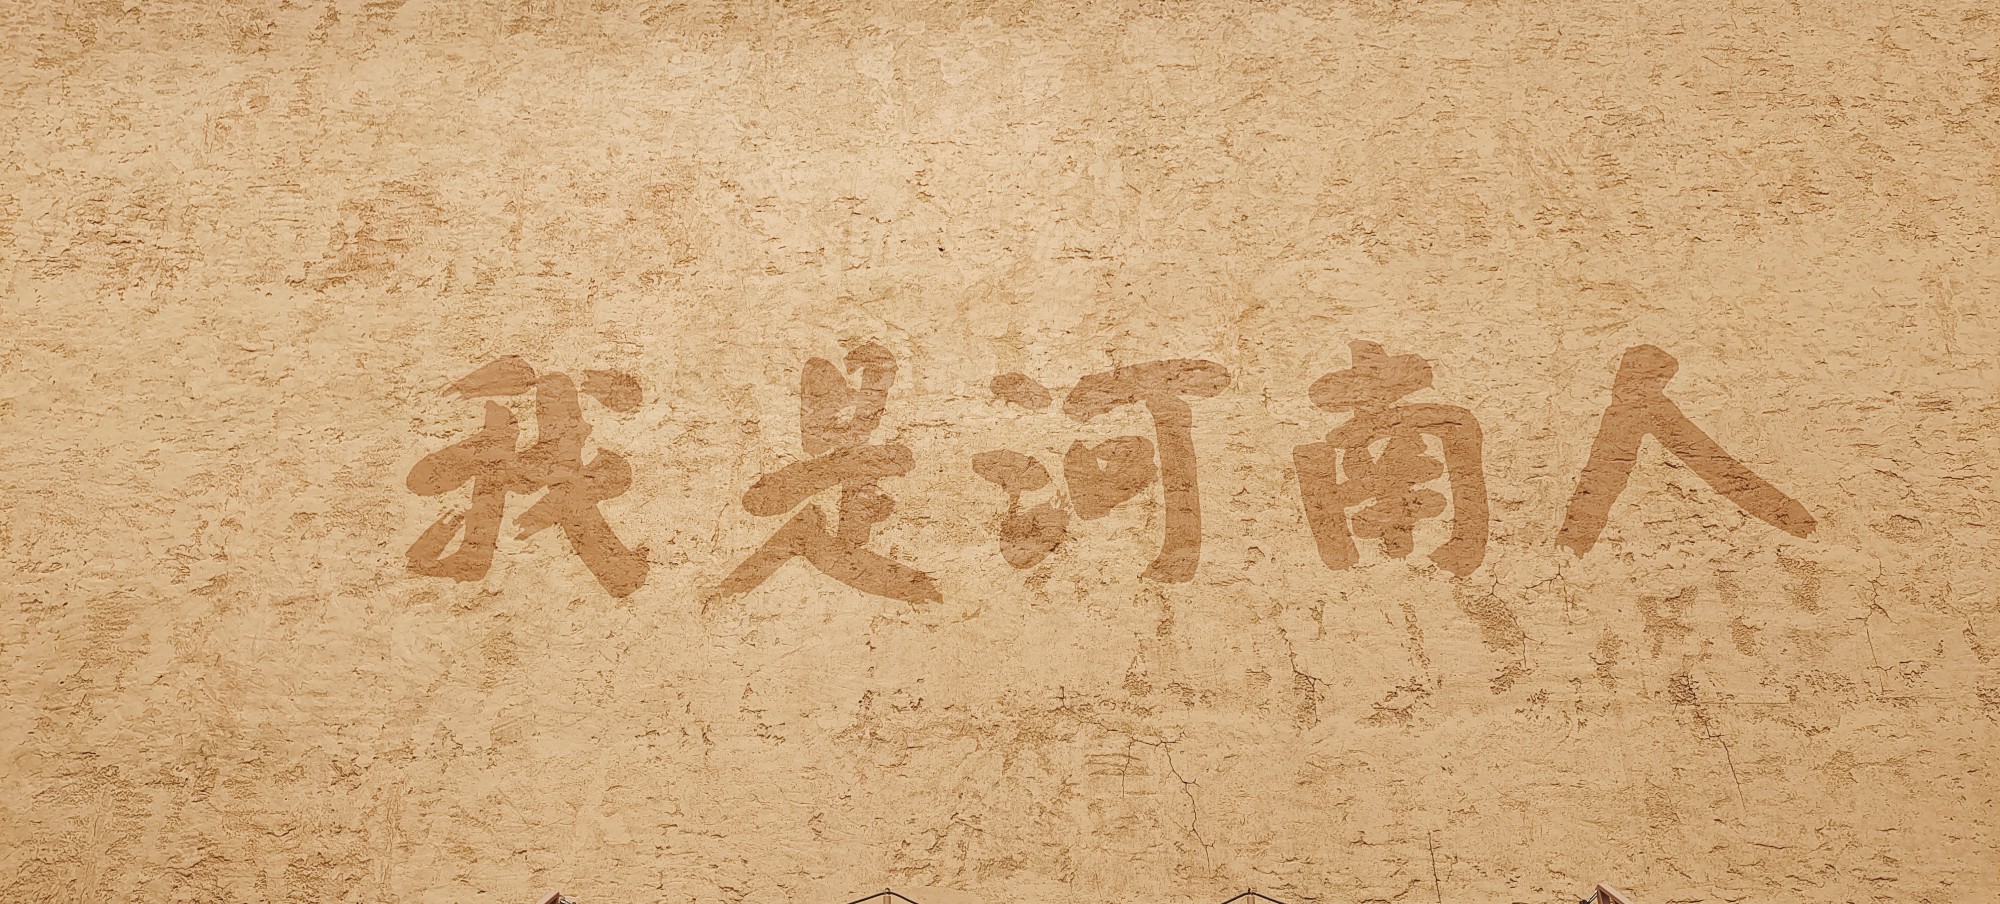 我是河南人